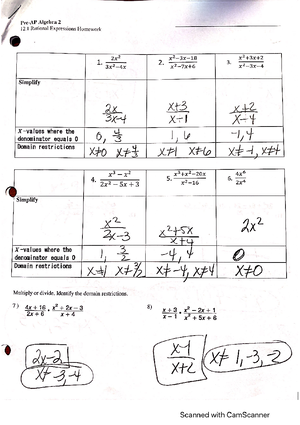 Pre-AP Algebra 2
12.1 Rational Expressions Homework
1. 2x²/3x²-4x 2. x²-3x-18/x²-7x+6 3. x²+3x+2/x²-3x-4
Simplify
2x/3x-4 x+3/x-1 x+2/x-4
x-values where the denominator equals 0
0, 4/3 1, 6 -1, 4
Domain restrictions
x≠0 x≠4/3 x≠1 x≠6 x≠-1, x≠4
4. x³-x²/2x²-5x+3 5. x³+x²-20x/x²-16 6. 4x⁶/2x⁴
Simplify
x²/2x-3 x²+5x/x+4 2x²
x-values where the denominator equals 0
1, 3/2 -4, 4 0
Domain restrictions
x≠1 x≠3/2 x≠-4, x≠4 x≠0
Multiply or divide. Identify the domain restrictions.
7) 4x+16/2x+6 · x²+2x-3/x+4 8) x+3/x-1 · x²-2x+1/x²+5x+6
2x-2 x-1/x+2 x≠1,-3,-2
x≠-3,-4
Scanned with CamScanner